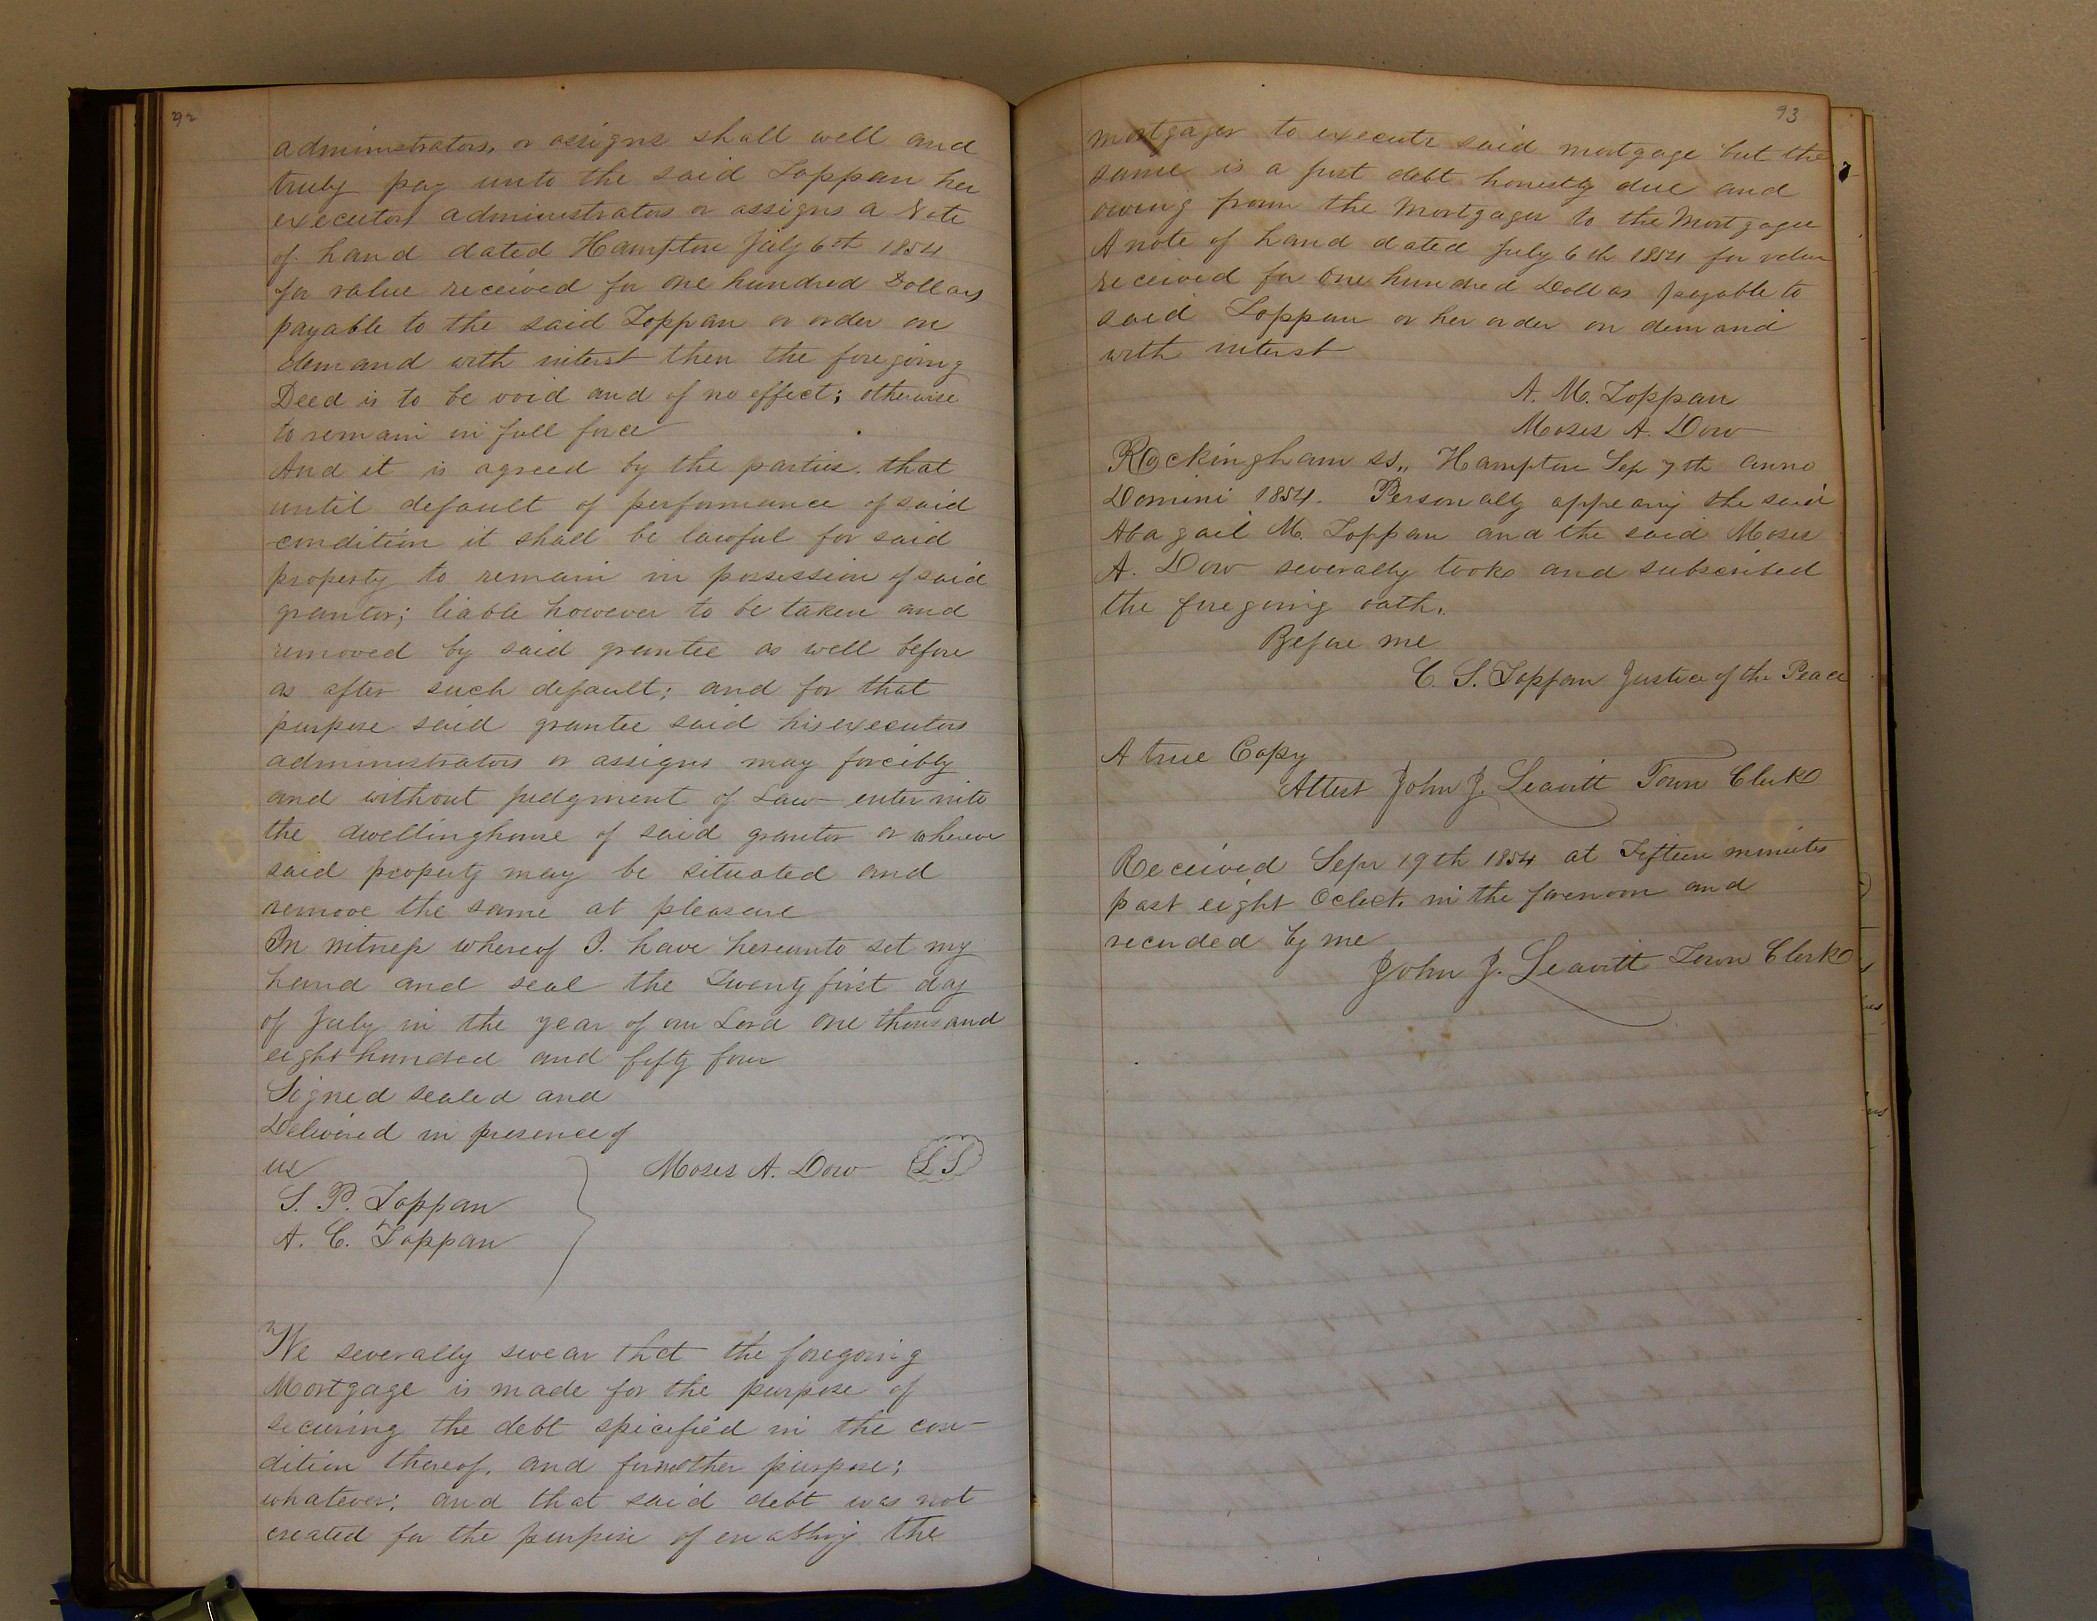 92
administrators, or assigns shall well and
truly pay unto the said Toppan her
executors administrators or assigns a Note
of hand dated Hampton July 6th 1854
for value received for one hundred Dollars
payable to the said Toppan or order on
demand with interst then the foregoing
Deed is to be void and of no effect; otherwise
to remain in full force
And it is agreed by the parties that
until default of performance of said
condition it shall be lawful for said
property to remain in possession of said
grantor; liable however to be taken and
removed by said grantee as well before
as after such default; and for that
purpose said grantee said his executors
administrators or assigns may forcibly
and without judgment of Law enter into
the dwellinghouse of said grantor or wherever
said property may be situated and
remove the same at pleasure
In witness whereof I have hereunto set my
hand and seal the Twenty first day
of July in the year of our Lord one thousand
eight hundred and fifty four
Signed sealed and
Delivered in presence of
us
Moses A. Dow LS
S. P. Toppan
A. C. Toppan
We severally swear that the foregoing
Mortgage is made for the purpose of
securing the debt spicified in the con-
dition thereof, and for no other purpose;
whatever; and that said debt was not
created for the purpose of enabling the
93
mortgager to execute said mortgage but the
same is a just debt honestly due and
owing from the Mortgager to the Mortgagee
A note of hand dated July 6th 1854 for value
received for One hundred Dollars payable to
said Toppan or her order on demand
with interst
A. M. Toppan
Moses A. Dow
Rockingham ss,, Hampton Sep 7th anno
Domini 1854. Personally appearing the said
Abagail M. Toppan and the said Moses
A. Dow severally took and subscribed
the foregoing oath.
Before me
C. S. Toppan Justice of the Peace
A true Copy
Attest John J. Leavitt Town Clerk
Received Sepr 19th 1854 at Fifteen minutes
past eight Oclock. in the forenoon and
recorded by me
John J. Leavitt Town Clerk